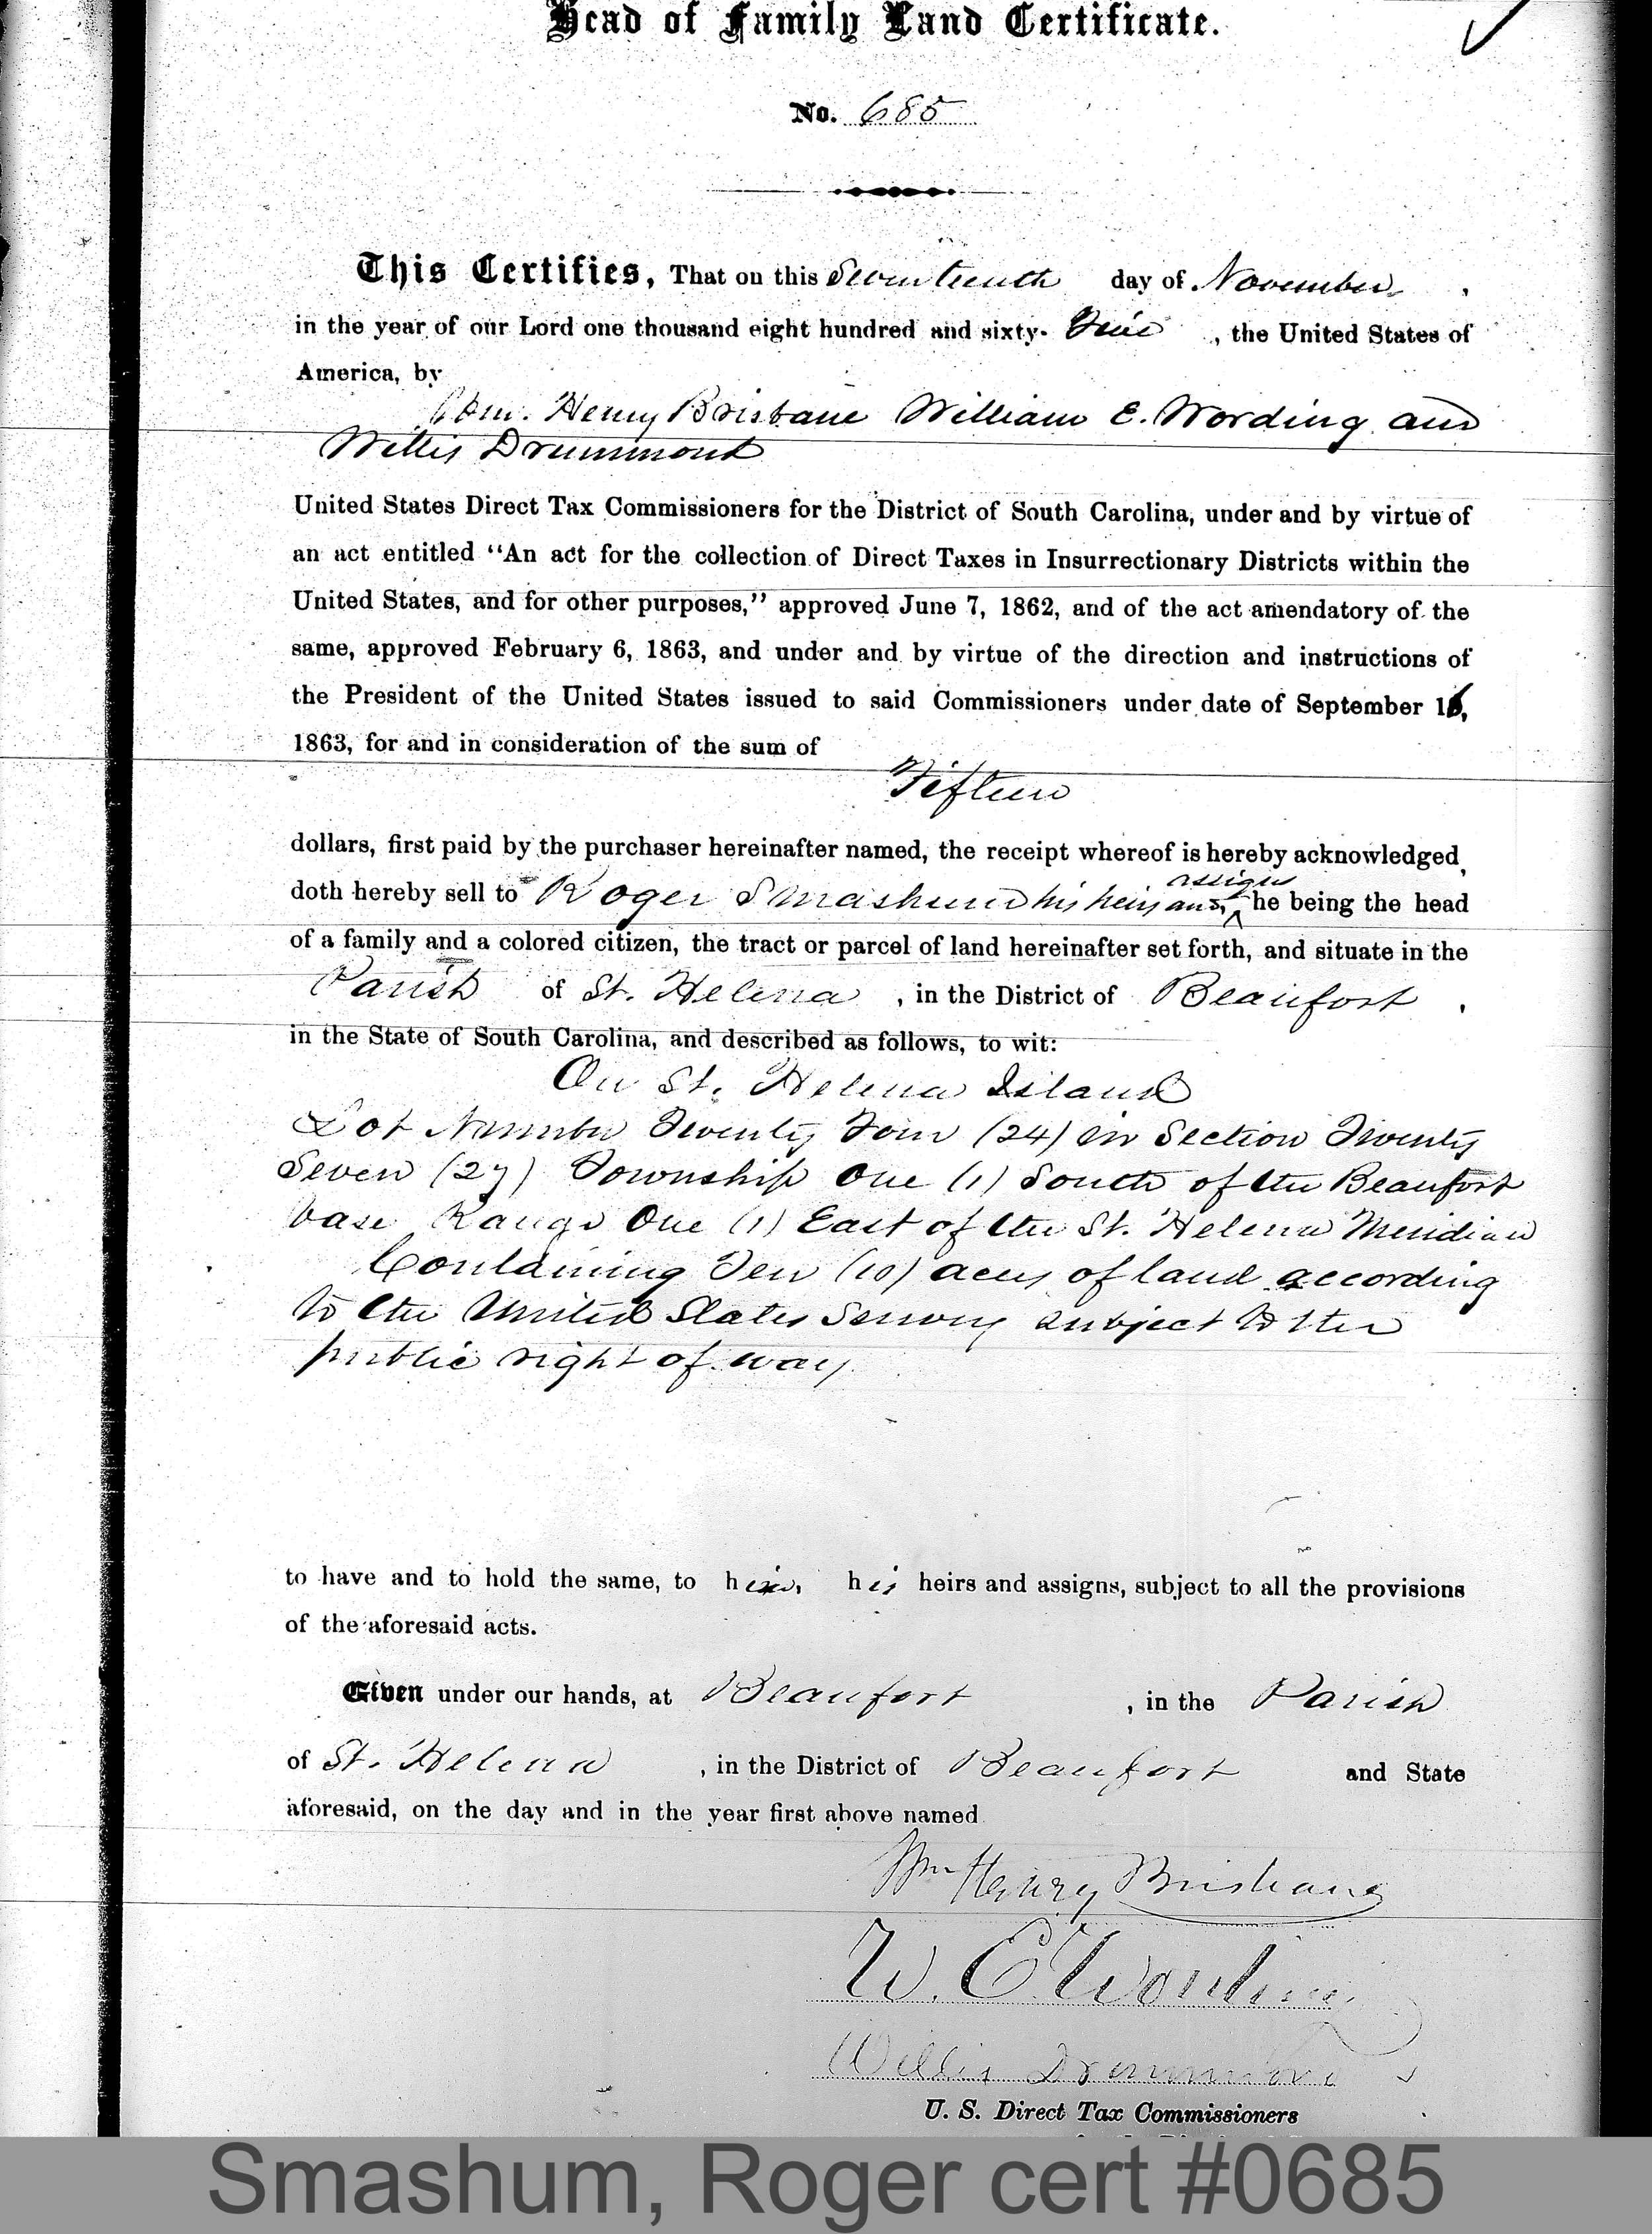 Head of Family Land Certificate.
No. 685
This Certifies, That on this Seventeenth day of November,
in the year of our Lord one thousand eight hundred and sixty- , the United States of
America, by
Wm. Henry Brisbane William E. Wording and
Willis Drummond
United States Direct Tax Commissioners for the District of South Carolina, under and by virtue of
an act entitled "An act for the collection of Direct Taxes in Insurrectionary Districts within the
United States, and for other purposes," approved June 7, 1862, and of the act amendatory of the
same, approved February 6, 1863, and under and by virtue of the direction and instructions of
the President of the United States issued to said Commissioners under date of September 16,
1863, for and in consideration of the sum of
Fifteen
dollars, first paid by the purchaser hereinafter named, the receipt whereof is hereby acknowledged,
assigns
doth hereby sell to Roger Smashum his heirs and, he being the head
of a family and a colored citizen, the tract or parcel of land hereinafter set forth, and situate in the
Parish of St. Helena, in the District of Beaufort,
in the State of South Carolina, and described as follows, to wit:
On St. Helena Island
Lot Number Twenty Four (24) in Section Twenty
Seven (27) Township One (1) South of the Beaufort
base Range One (1) East of the St. Helena Meridian
Containing Ten (10) acres of land according
to the United States Survey subject to the
public right of way.
to have and to hold the same, to him, his heirs and assigns, subject to all the provisions
of the aforesaid acts.
Given under our hands, at Beaufort, in the Parish
of St. Helena, in the District of Beaufort and State
aforesaid, on the day and in the year first above named
Wm Henry Brisbane
W. E. Wording
Willis Drummond
U. S. Direct Tax Commissioners
Smashum, Roger cert #0685